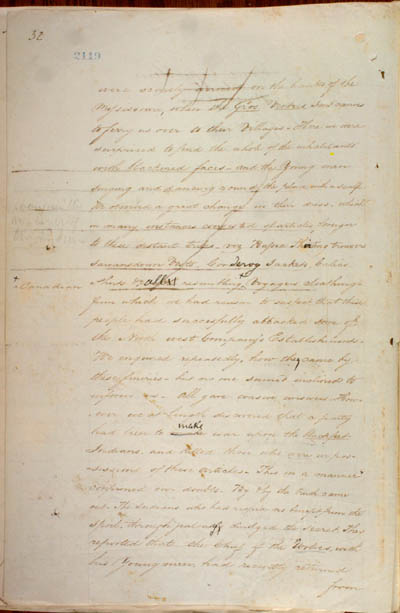 32
2119
were on the banks of the
Missesourie, when the Gros Ventres came
to ferry us over to their Villages - Here we were
surprised to find the whole of the inhabitants
with blackened faces - and the Young men
singing and dancing round the place with a scalp
We observed a great change in their dress, which
in many instances consisted of articles foreign
to these distant tribes - viz Trowsers
Corderoy Jackets, Calico
Shirts & all resembling + Voyagers cloathing
+ Canadian
from which we had reason to suspect that these
people had successfully attacked some of
the North west Company's Establishments.
We enquired repeatedly, how they came by
this finery - but no one seemed inclined to
inform us - All gave evasive answers. How
ever we at length discovered that a party
had been to make war upon the
Indians, and killed them who were in pos-
sessions of these articles - This in a manner
confirmed our doubts. By & by the truth came
out. The Indians who had no benefit from the
spoil, through jealousy divulged the secret. They
reported that the Chief of the with
his Young men, had recently returned
from